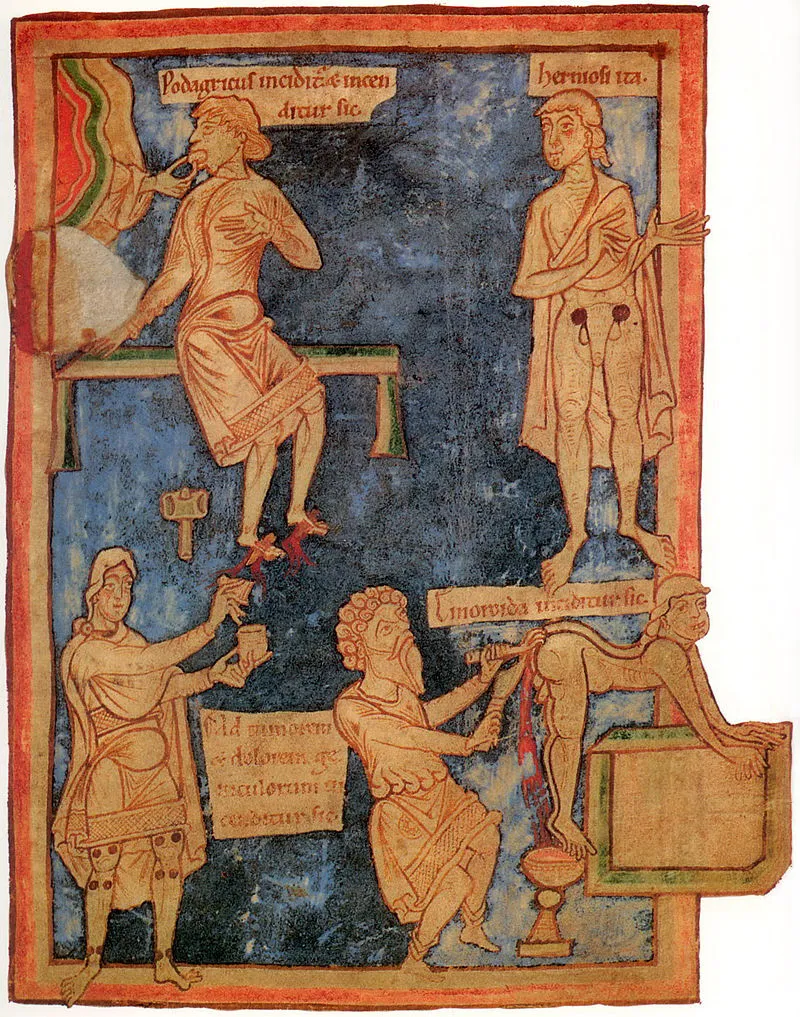 Podagricus inciditur & incen
ditur sic
hermosi ita.
Emoroida inciditur sic
Ad timorem
& dolorem ge
niculorum in
cenditur sic